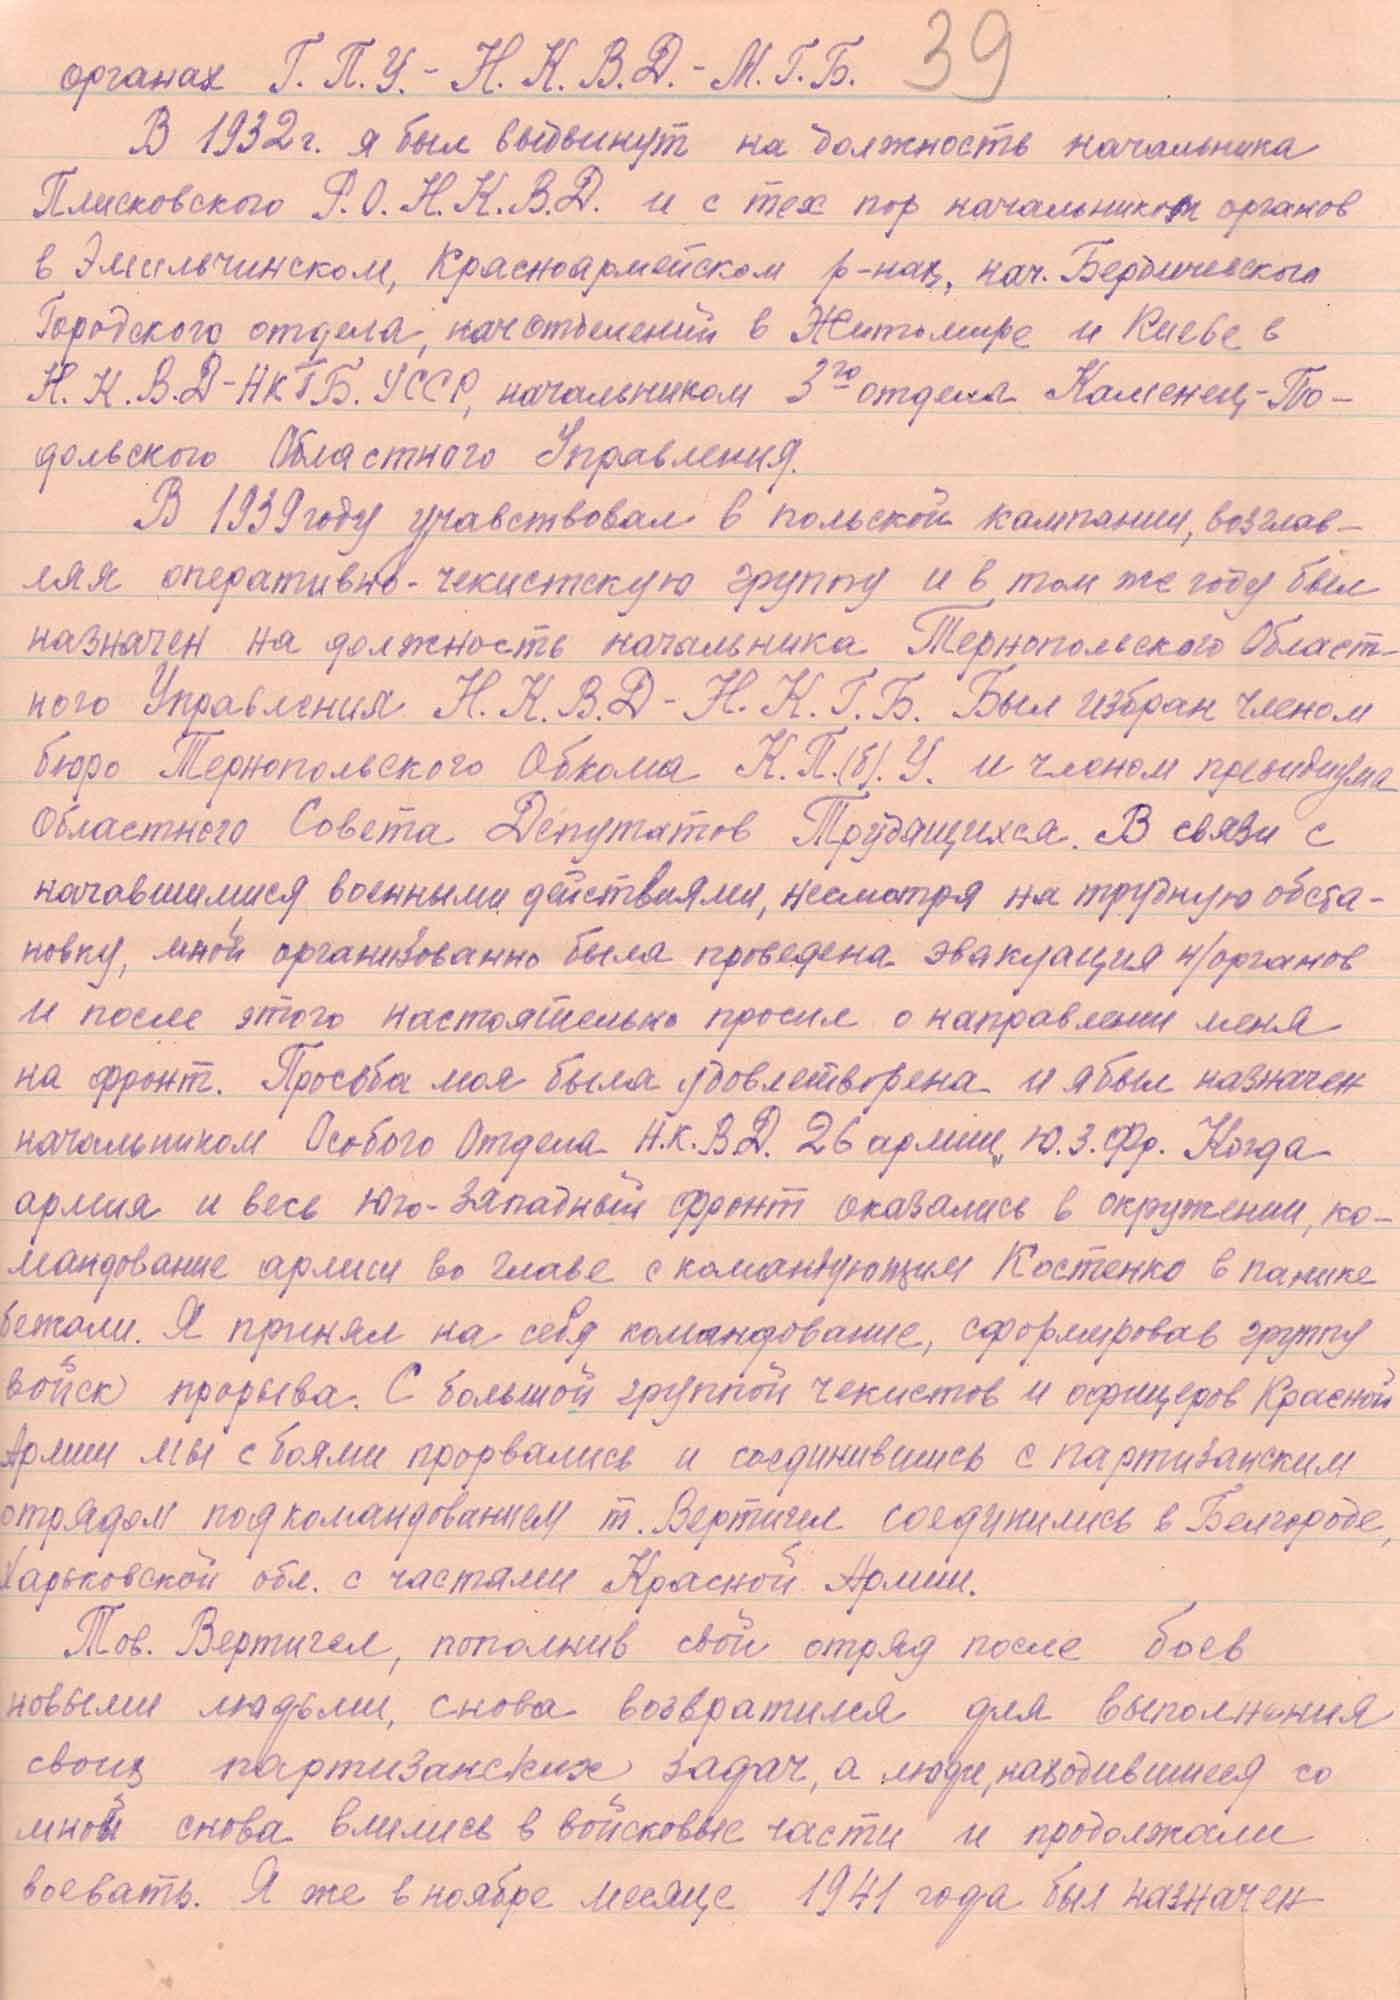 органах Г.П.У.-Н.К.В.Д.-М.Г.Б. 39
В 1932г. я был выдвинут на должность начальника
Плисковского Р.О.Н.К.В.Д. и с тех пор начальником органов
в Эмильчинском, Красноармейском р-нах, нач. Бердичевского
Городского отдела, нач отделений в Житомире и Киеве в
Н.К.В.Д-НКГБ. УССР, начальником 3го отдела Каменец-По-
дольского Областного Управления.
В 1939 году учавствовал в польской кампании, возглав-
ляя оперативно-чекистскую группу и в том же году был
назначен на должность начальника Тернопольского Област-
ного Управления Н.К.В.Д-Н.К.Г.Б. Был избран членом
бюро Тернопольского Обкома К.П.(б).У. и членом президиума
Областного Совета Депутатов Трудящихся. В связи с
начавшимися военными действиями, несмотря на трудную обста-
новку, мной организованно была проведена эвакуация н/органов
и после этого настоятельно просил о направлении меня
на фронт. Просьба моя была удовлетворена и я был назначен
начальником Особого Отдела Н.К.В.Д. 26 армии, Ю.З.Фр. Когда
армия и весь Юго-Западный фронт оказались в окружении, ко-
мандование армии во главе с командующим Костенко в панике
бежали. Я принял на себя командование, сформировав группу
войск прорыва. С большой группой чекистов и офицеров Красной
Армии мы с боями прорвались и соединившись с партизанским
отрядом под командованием т. Вертигел соединились в Белгороде,
Харьковской обл. с частями Красной Армии.
Тов. Вертигел, пополнив свой отряд после боев
новыми людьми, снова возвратился для выполнения
своих партизанских задач, а люди, находившиеся со
мной снова влились в войсковые части и продолжали
воевать. Я же в ноябре месяце 1941 года был назначен